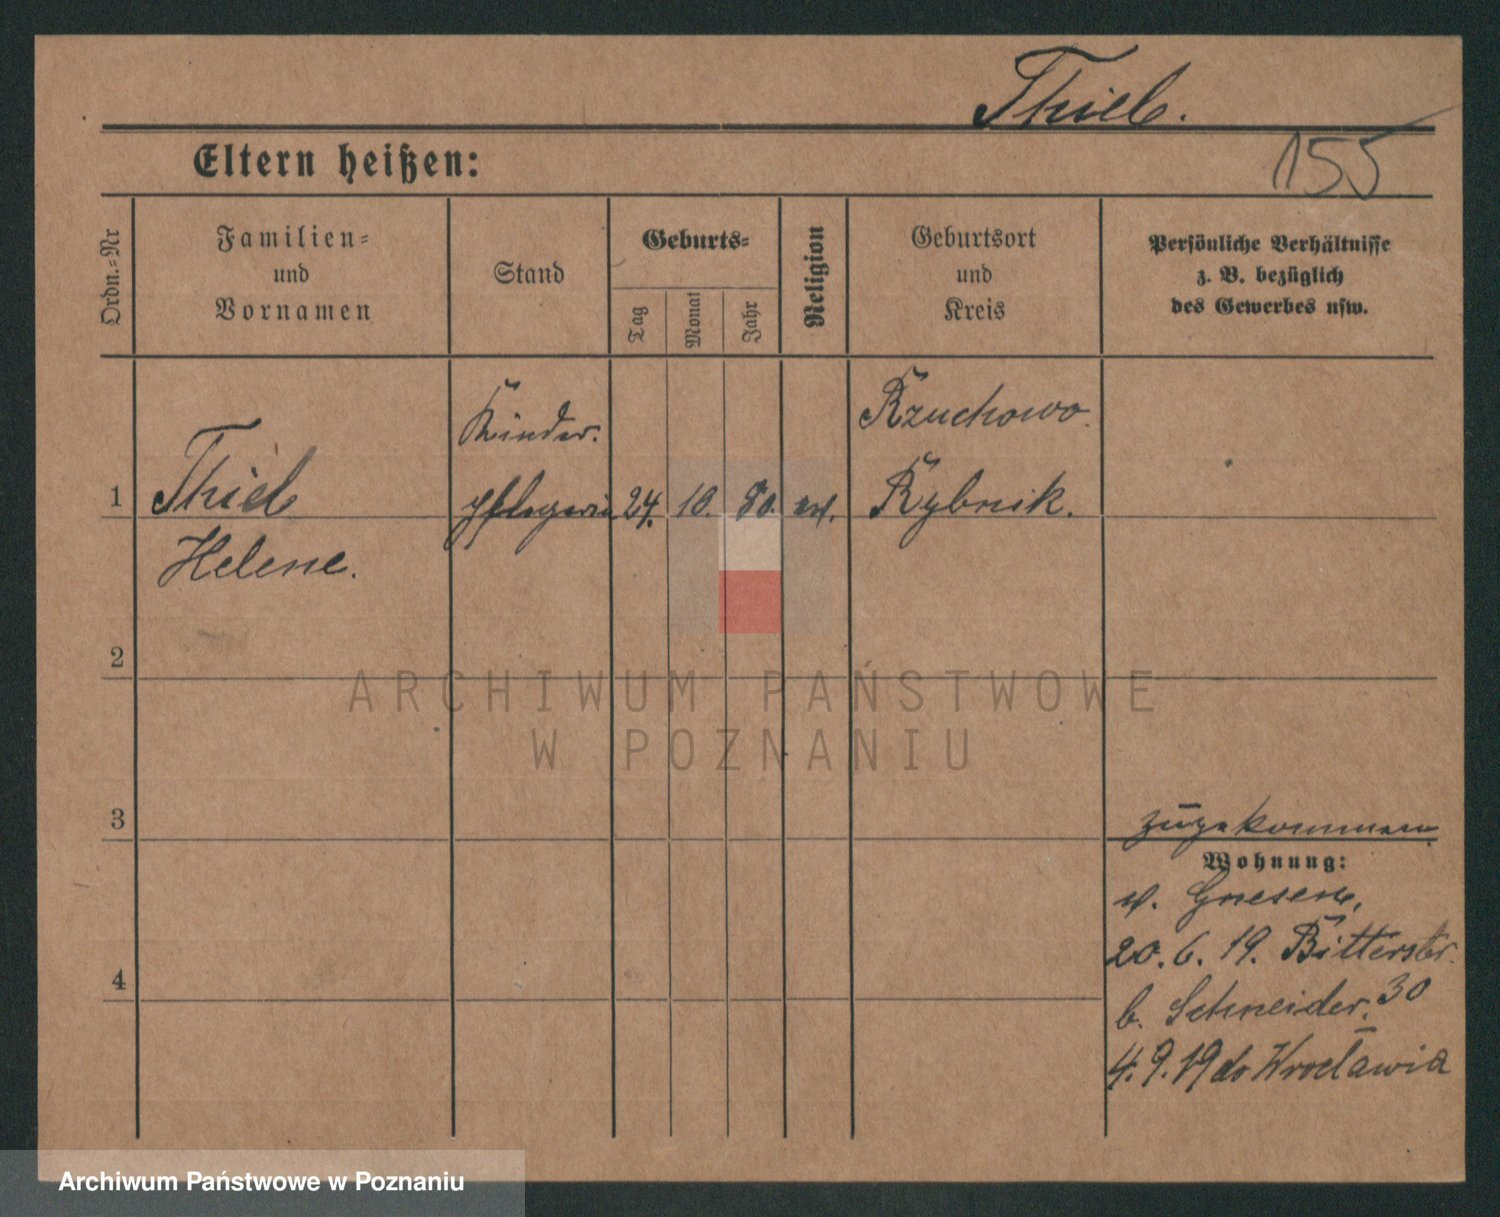 Thiel.
155
Eltern heißen:
Ordn.-Nr
Familien-
und
Vornamen
Stand
Geburts-
Tag
Monat
Jahr
Religion
Geburtsort
und
Kreis
Persönliche Verhältnisse
z. B. bezüglich
des Gewerbes usw.
1
Thiel
Helene.
Kinder-
pflegerin
24.
10.
80.
ev.
Rzuchowo.
Rybnik.
2
ARCHIWUM PAŃSTWOWE
W POZNANIU
3
zugekommen
Wohnung:
v. Gnesen,
20. 6. 19. Ritterstr.
b. Schneider. 30
4
4. 9. 19 do Wrocławia
Archiwum Państwowe w Poznaniu